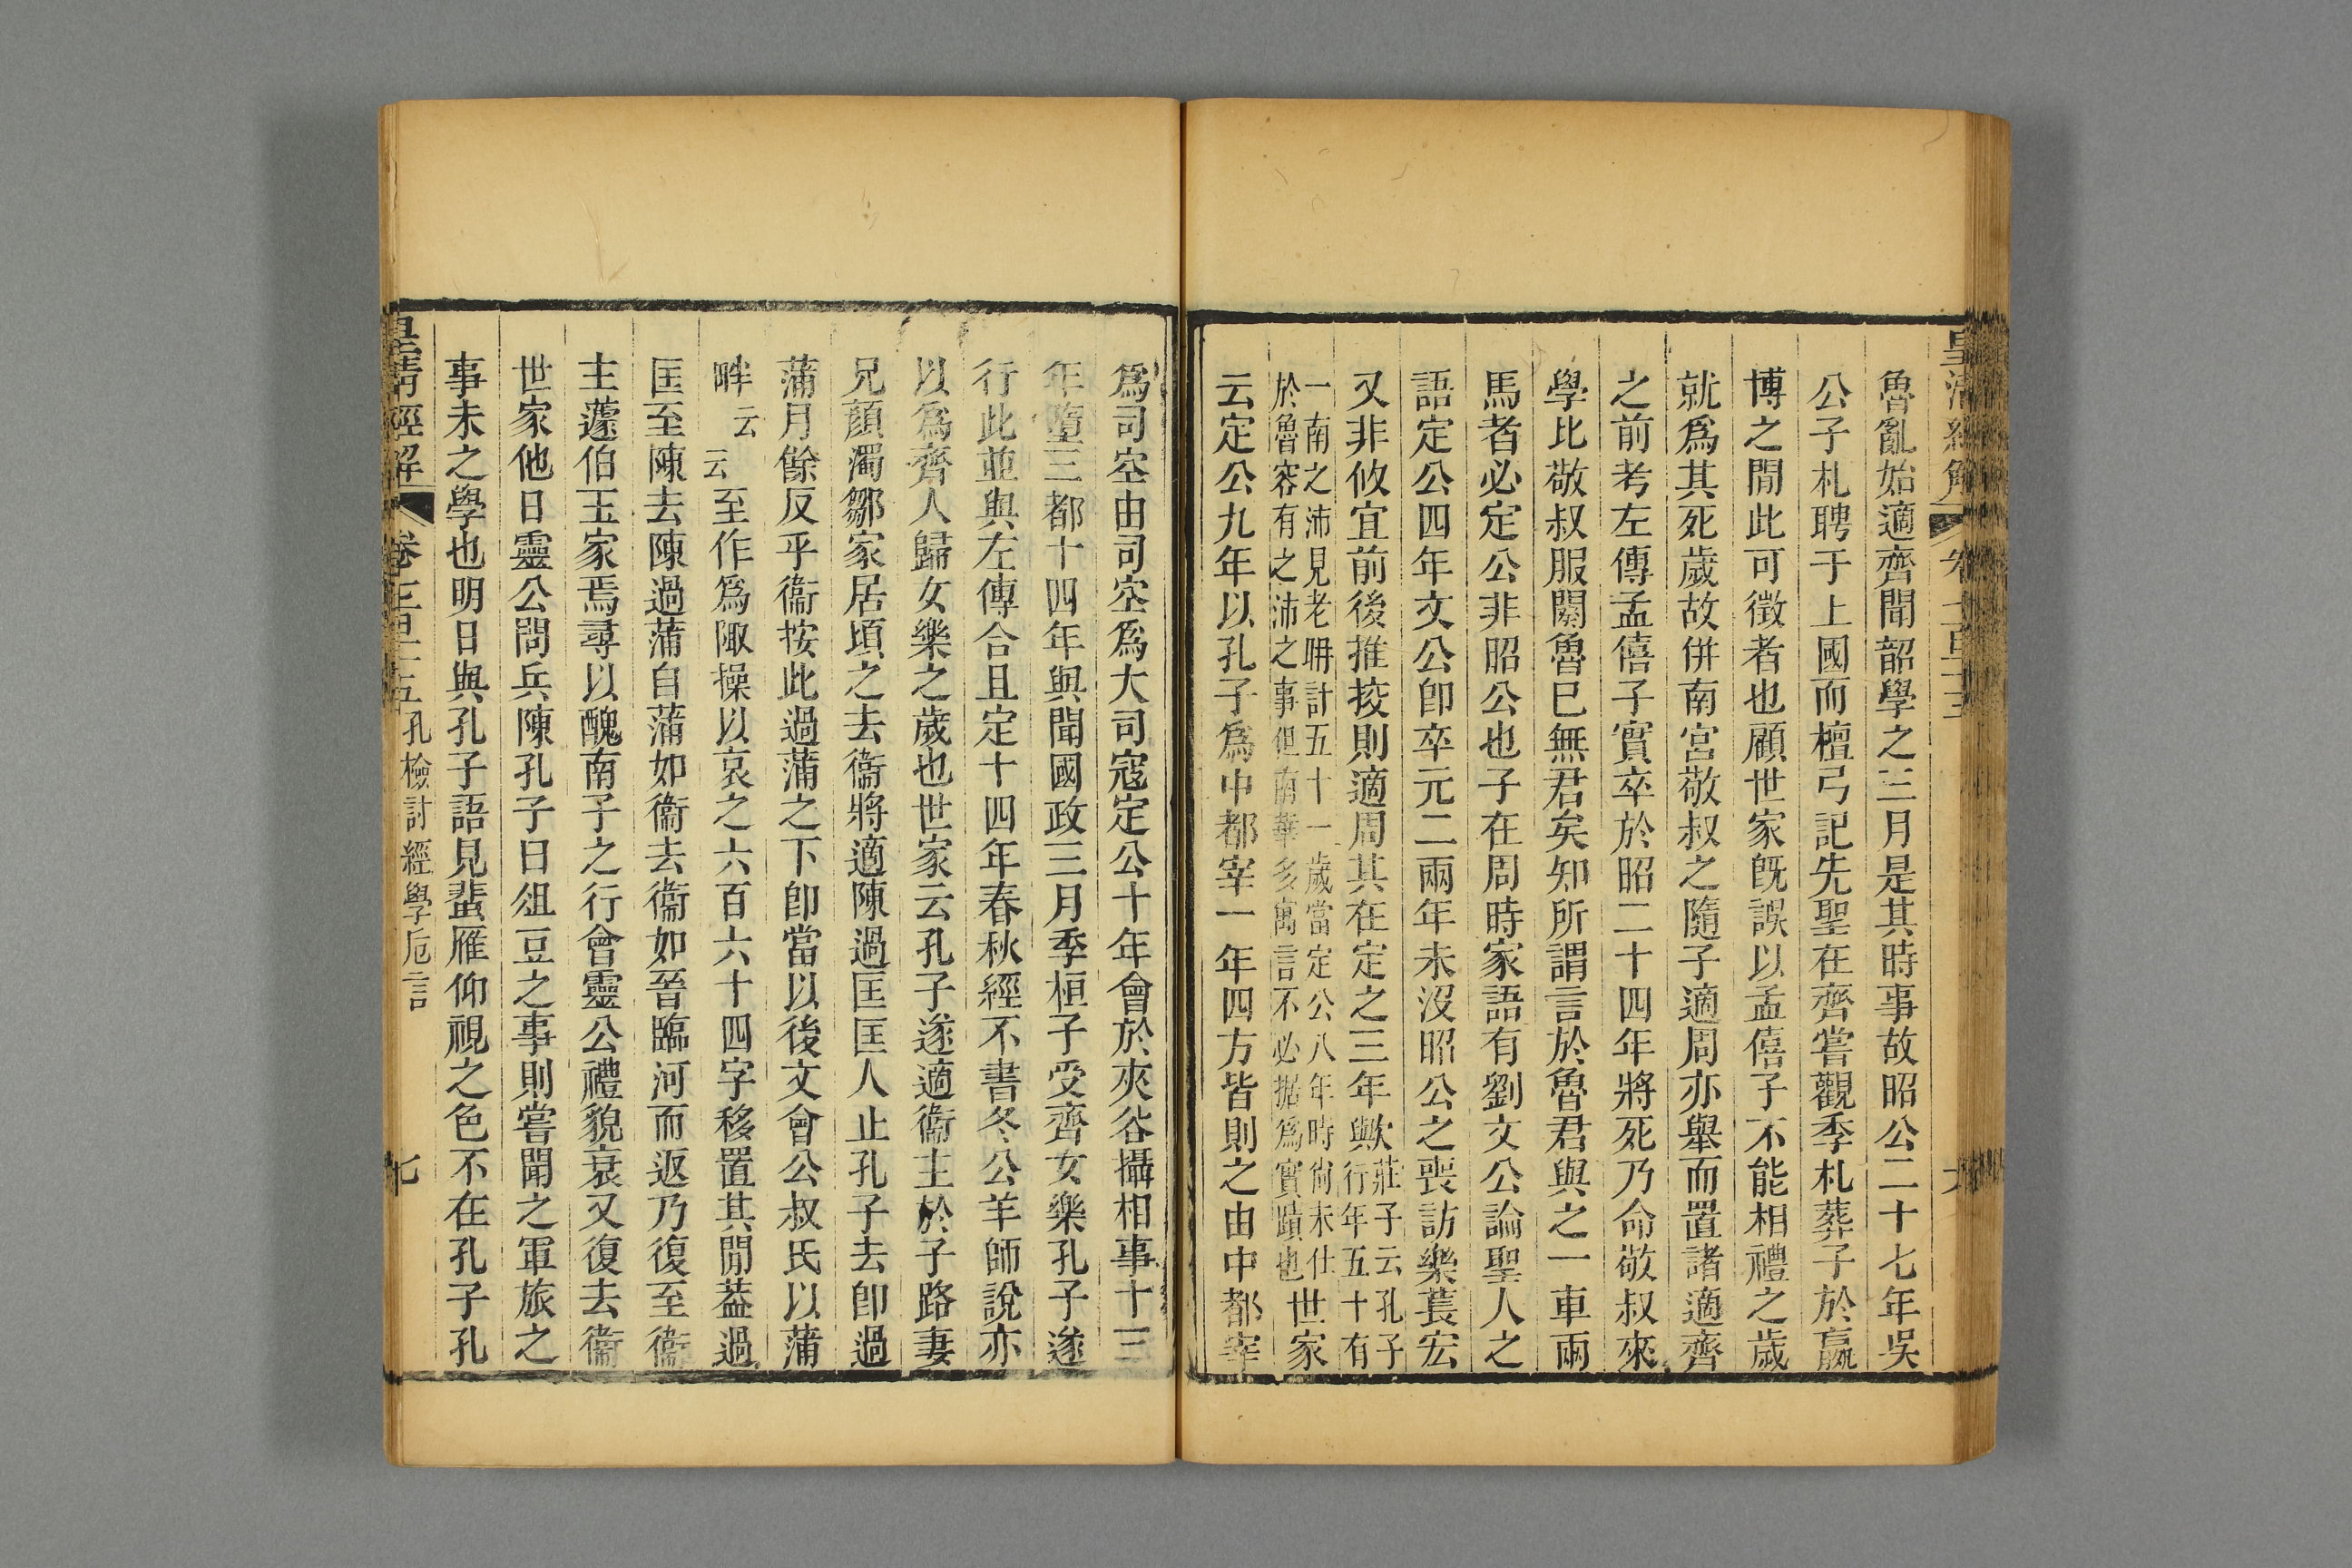 魯亂始適齊聞韶學之三月是其時事故昭公二十七年吳
公子札聘于上國而檀弓記先聖在齊嘗觀季札葬子於嬴
博之閒此可徵者也顧世家旣誤以孟僖子不能相禮之歲
就爲其死歲故併南宮敬叔之隨子適周亦舉而置諸適齊
之前考左傳孟僖子實卒於昭二十四年將死乃命敬叔來
學比敬叔服闋魯已無君矣知所謂言於魯君與之一車兩
馬者必定公非昭公也子在周時家語有劉文公論聖人之
語定公四年文公卽卒元二兩年未沒昭公之喪訪樂萇宏
又非攸宜前後推挍則適周其在定之三年歟莊子云孔子行年五十有
一南之沛見老耼計五十一歲當定公八年時尙未仕於魯容有之沛之事但南華多寓言不必据爲實蹟也世家
云定公九年以孔子爲中都宰一年四方皆則之由中都宰
皇清經解
爲司空由司空爲大司寇定公十年會於夾谷攝相事十三
年墮三都十四年與聞國政三月季桓子受齊女樂孔子遂
行此並與左傳合且定十四年春秋經不書冬公羊師說亦
以爲齊人歸女樂之歲也世家云孔子遂適衞主於子路妻
兄顏濁鄒家居頃之去衞將適陳過匡匡人止孔子去卽過
蒲月餘反乎衞按此過蒲之下卽當以後文會公叔氏以蒲
畔云云至作爲陬操以哀之六百六十四字移置其閒葢過
匡至陳去陳過蒲自蒲如衞去衞如晉臨河而返乃復至衞
主蘧伯玉家焉尋以醜南子之行會靈公禮貌衰又復去衞
世家他日靈公問兵陳孔子曰俎豆之事則嘗聞之軍旅之
事未之學也明日與孔子語見蜚雁仰視之色不在孔子孔
皇清經解 孔檢討經學卮言 七